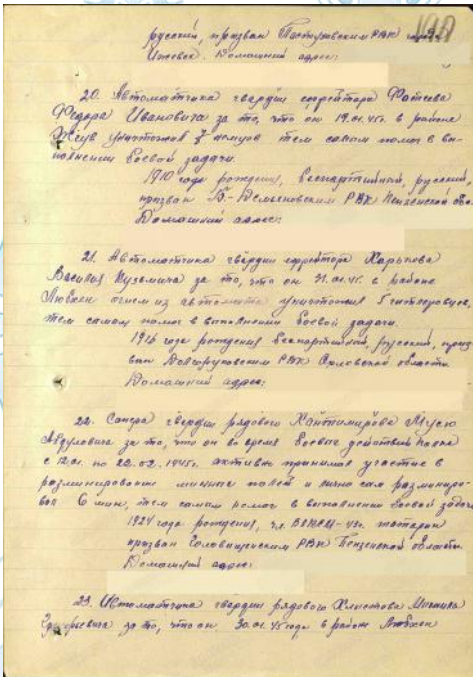 русский, призван Пастуховским РВК города
Ижевск. Домашний адрес:
20. Автоматчика гвардии ефрейтора Фатеева
Федора Ивановича за то, что он 19.01.45г. в районе
уничтожил немцев тем самым помог в вы-
полнении боевой задачи.
1910 года рождения, беспартийный, русский,
призван РВК Пензенской обл.
Домашний адрес:
21. Автоматчика гвардии ефрейтора Харькова
Василия Кузьмича за то, что он 31.01.45г. в районе
Любхен огнем из автомата уничтожил 5 гитлеровцев,
тем самым помог в выполнении боевой задачи.
1916 года рождения беспартийный, русский, приз-
ван Долгоруковским РВК Орловской области
Домашний адрес:
22. Сапера гвардии рядового Хантимирова Мусю
Абдуловича за то, что он во время боевых действий полка
с 12.01. по 22.02.1945г. активно принимал участие в
разминировании минных полей и лично сам разминиро-
вал 6 мин, тем самым помог в выполнении боевой задачи
1924 года рождения, чл. ВЛКСМ-43г. татарин
призван Головищенским РВК Пензенской области.
Домашний адрес:
23. Автоматчика гвардии рядового Хлистова Михаила
за то, что он 30.01.45 года в районе Любхен